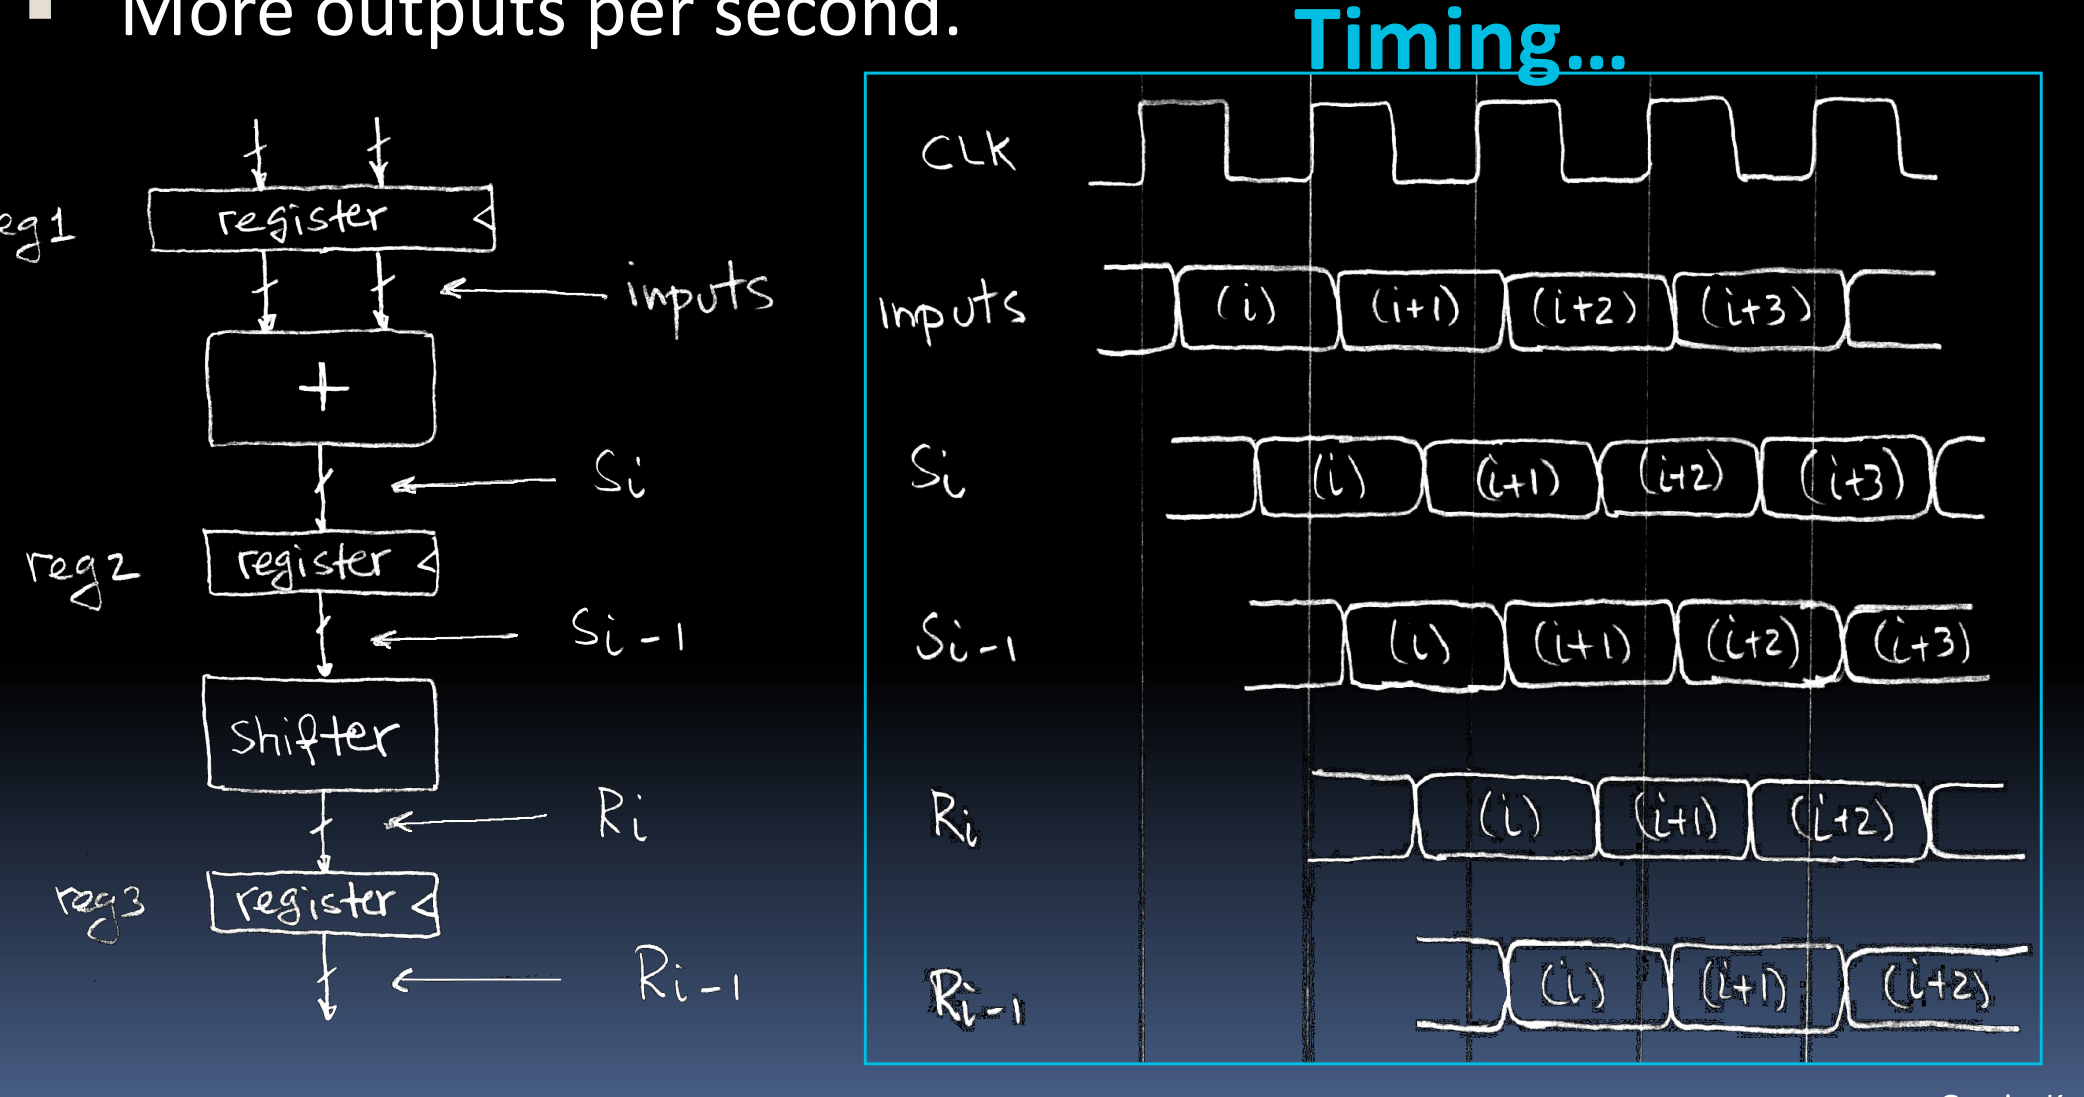 More outputs per second.
Timing...
reg1
register
inputs
+
Si
reg2
register
Si-1
shifter
Ri
reg3
register
Ri-1
CLK
Inputs (i) (i+1) (i+2) (i+3)
Si (i) (i+1) (i+2) (i+3)
Si-1 (i) (i+1) (i+2) (i+3)
Ri (i) (i+1) (i+2)
Ri-1 (i) (i+1) (i+2)